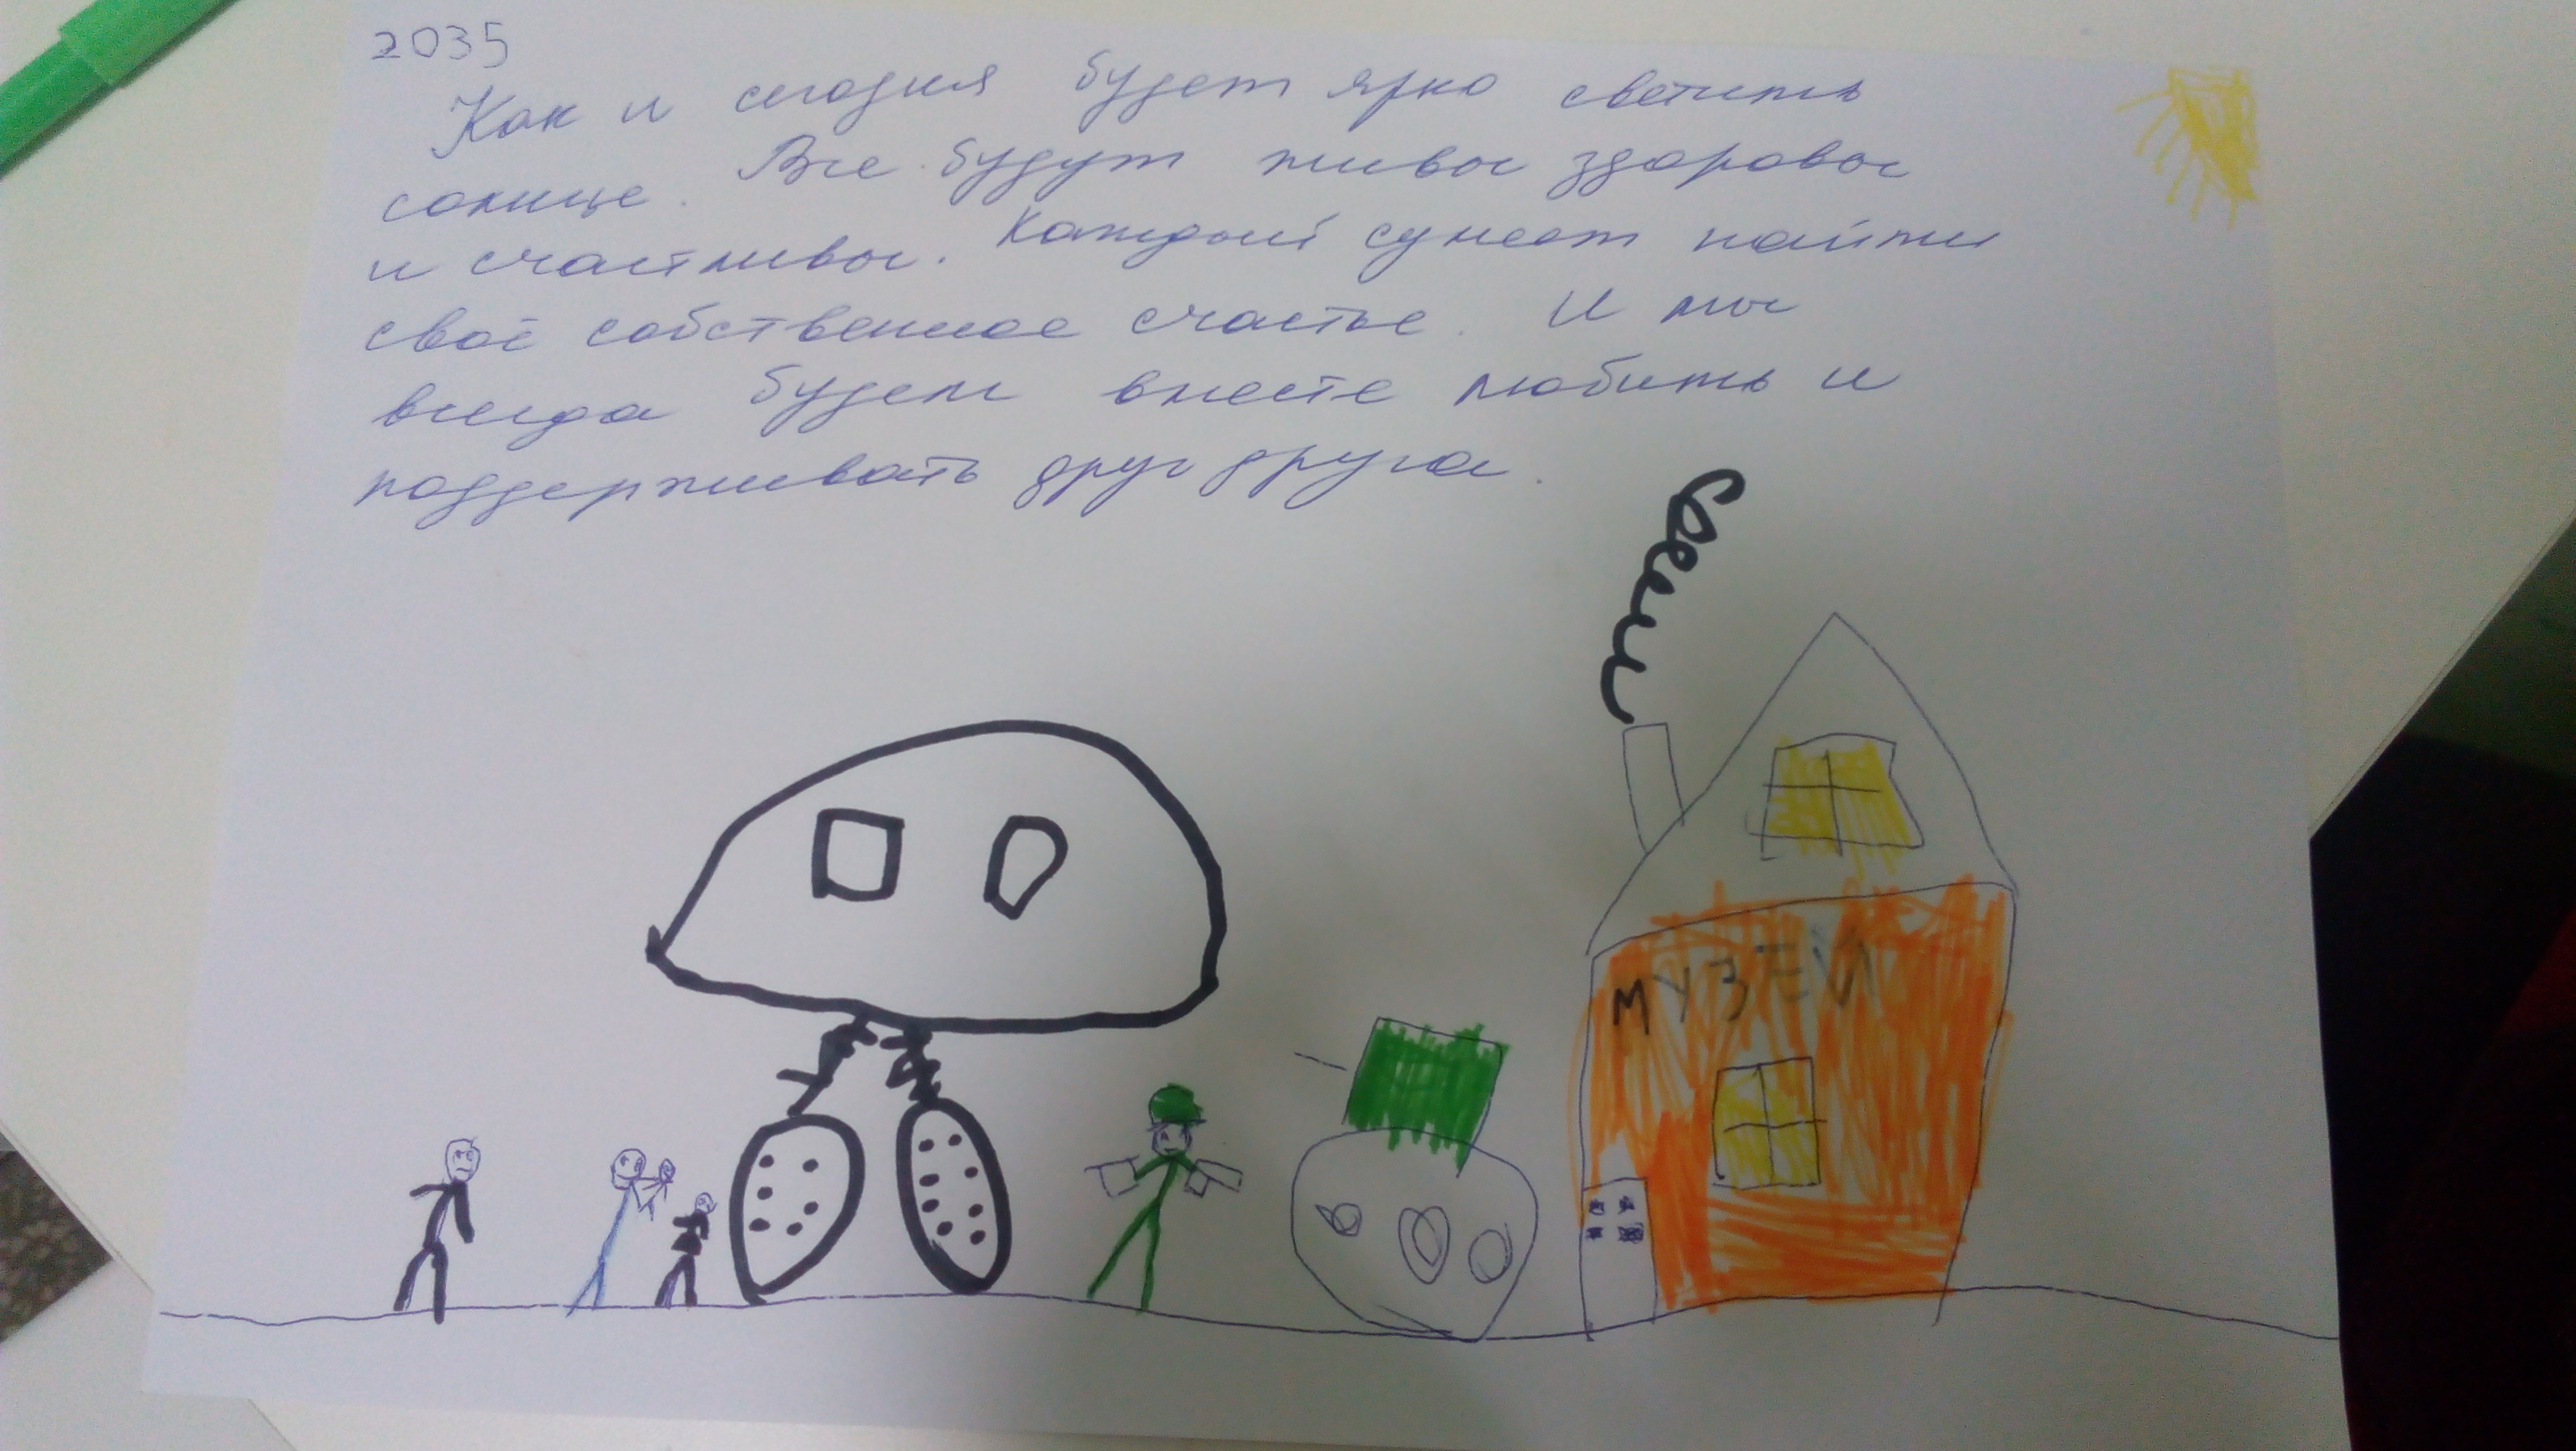 2035
Как и сегодня будет ярко светить
солнце. Все будут живы здоровы
и счастливы. Каждый сумеет найти
своё собственное счастье. И мы
всегда будем вместе любить и
поддерживать друг друга.
МУЗЕЙ